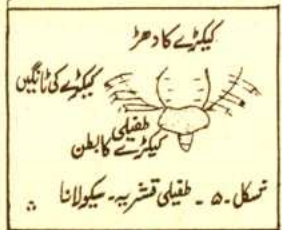 کیکڑے کا دھڑ
کیکڑے کی ٹانگیں
طفیلی
کیکڑے کا بطن
شکل ۔ ۵ ۔ طفیلی قشریہ ۔ سیکولانا